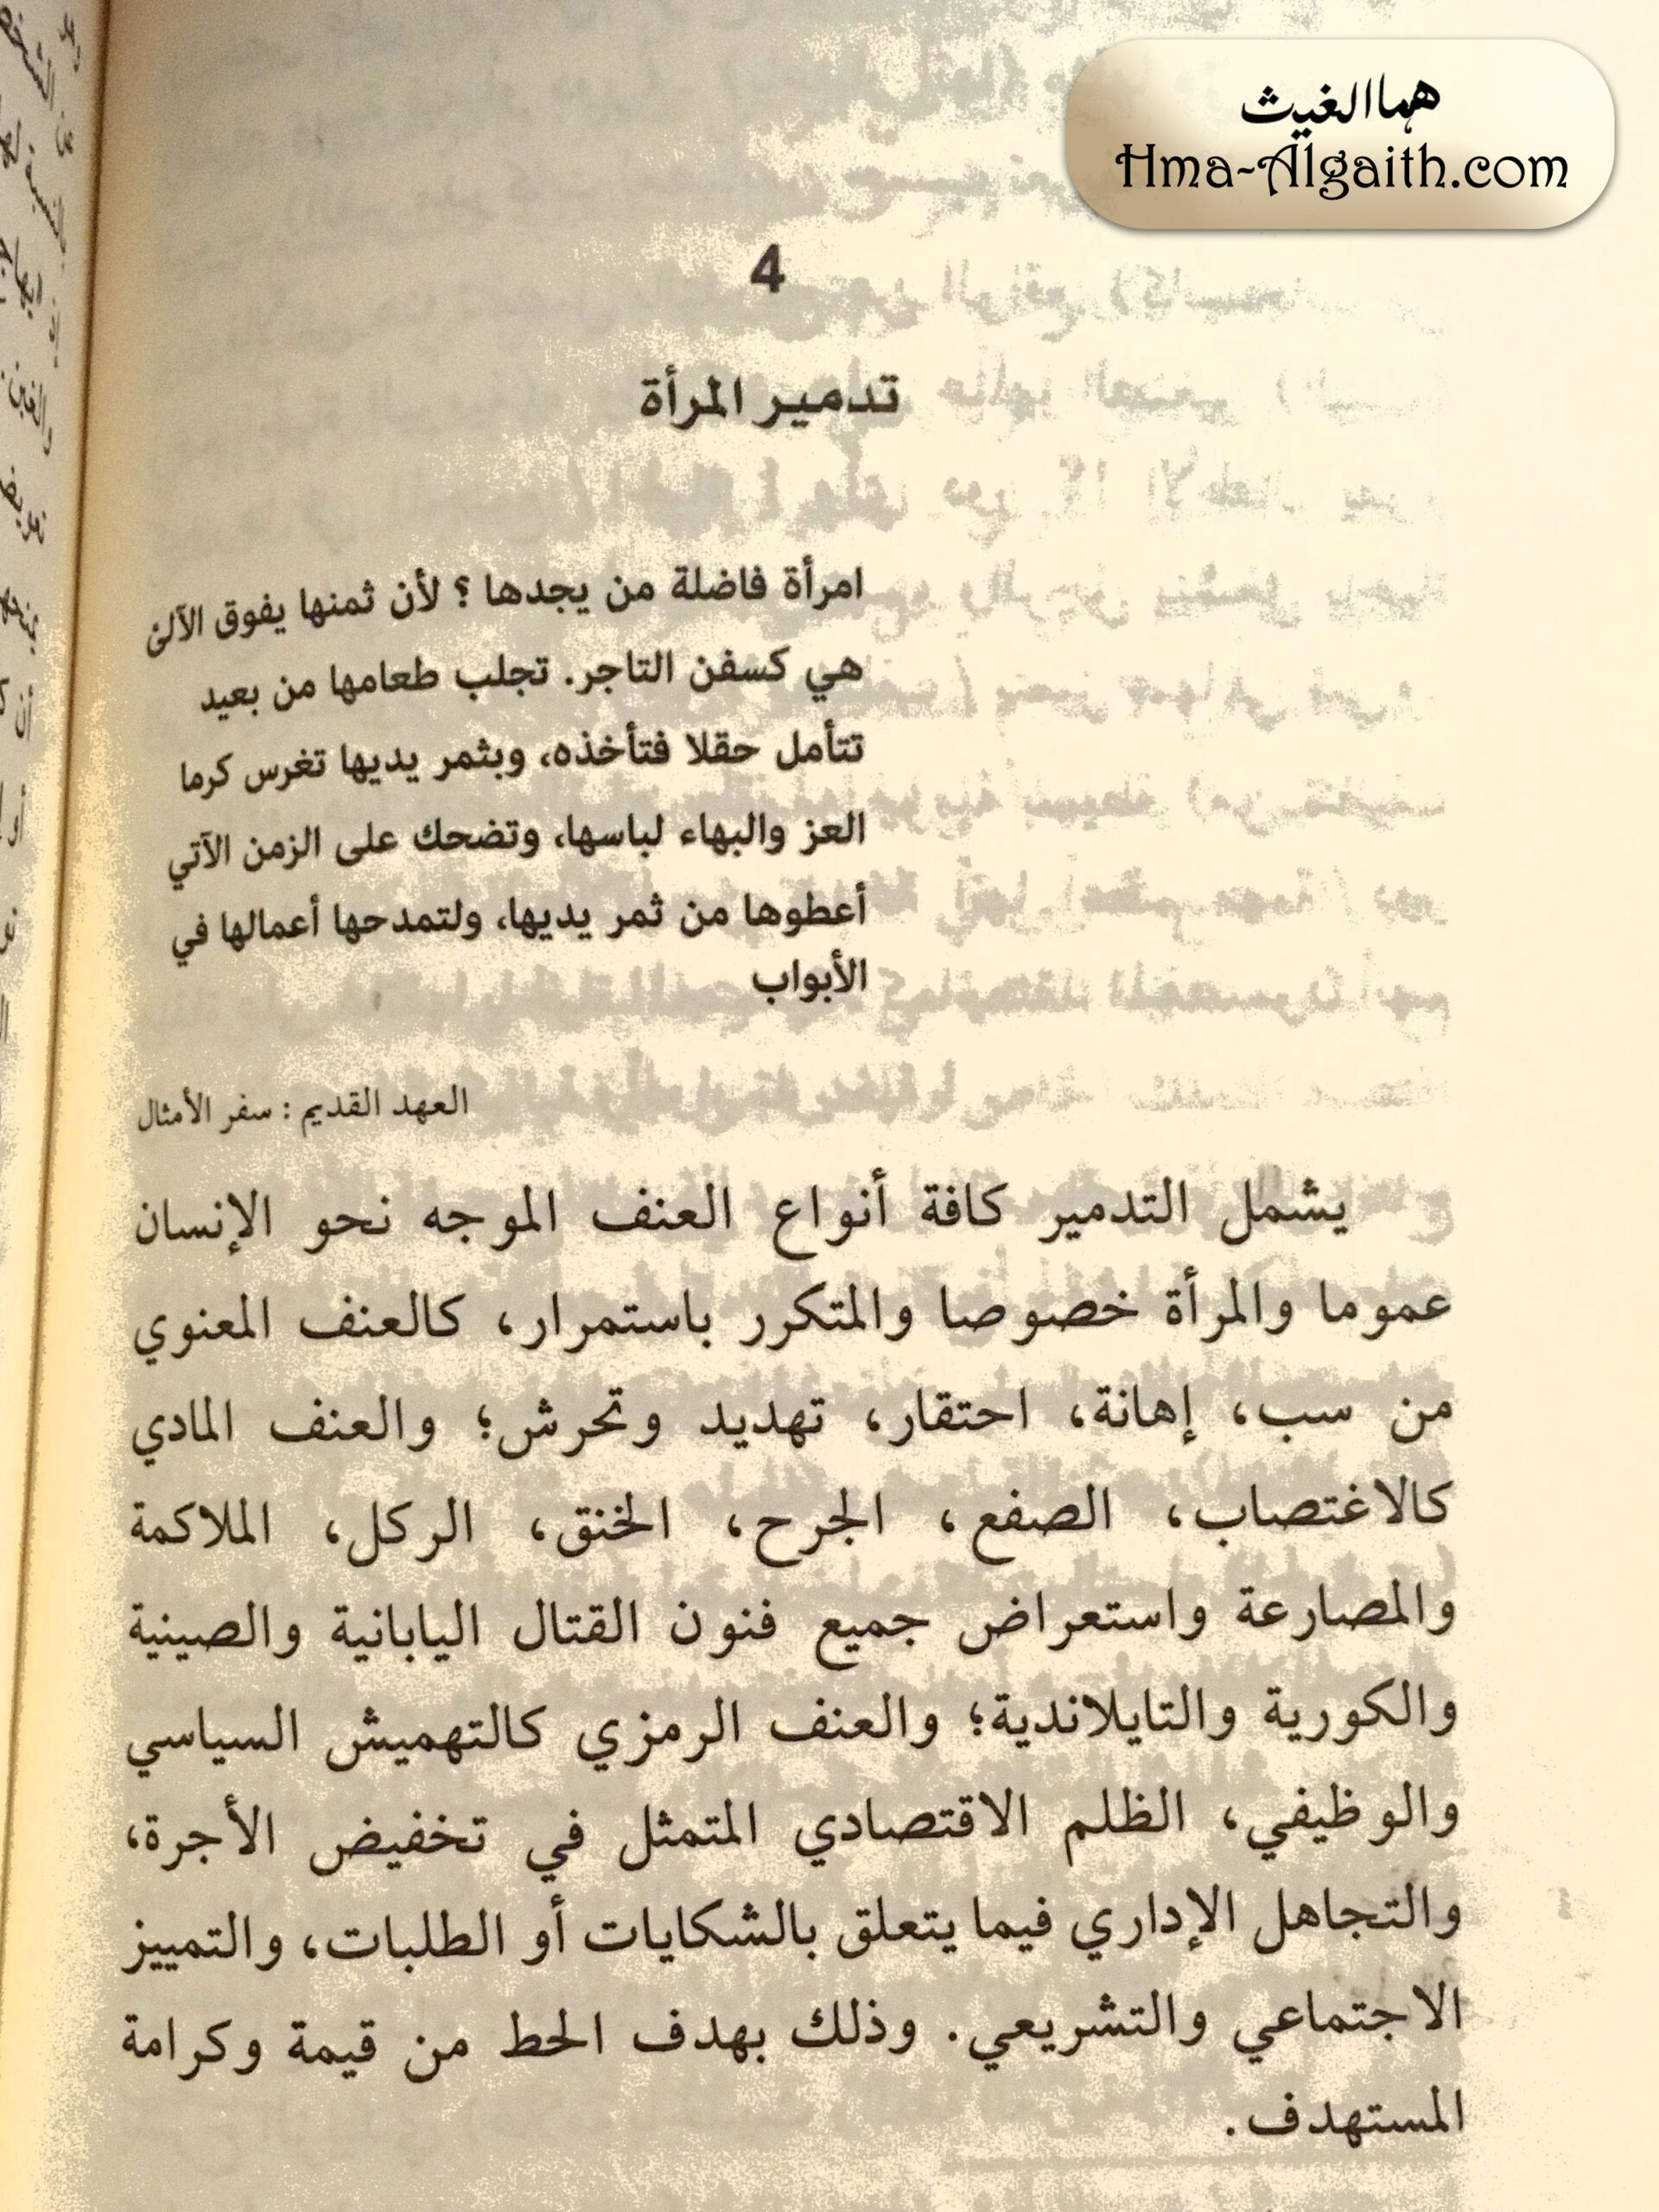 هما الغيث
Hma-Algaith.com
4
تدمير المرأة
امرأة فاضلة من يجدها ؟ لأن ثمنها يفوق الآلئ
هي كسفن التاجر. تجلب طعامها من بعيد
تتأمل حقلا فتأخذه، وبثمر يديها تغرس كرما
العز والبهاء لباسها، وتضحك على الزمن الآتي
أعطوها من ثمر يديها، ولتمدحها أعمالها في
الأبواب
العهد القديم : سفر الأمثال
يشمل التدمير كافة أنواع العنف الموجه نحو الإنسان
عموما والمرأة خصوصا والمتكرر باستمرار، كالعنف المعنوي
من سب، إهانة، احتقار، تهديد وتحرش؛ والعنف المادي
كالاغتصاب، الصفع، الجرح، الخنق، الركل، الملاكمة
والمصارعة واستعراض جميع فنون القتال اليابانية والصينية
والكورية والتايلاندية؛ والعنف الرمزي كالتهميش السياسي
والوظيفي، الظلم الاقتصادي المتمثل في تخفيض الأجرة،
والتجاهل الإداري فيما يتعلق بالشكايات أو الطلبات، والتمييز
الاجتماعي والتشريعي. وذلك بهدف الحط من قيمة وكرامة
المستهدف.